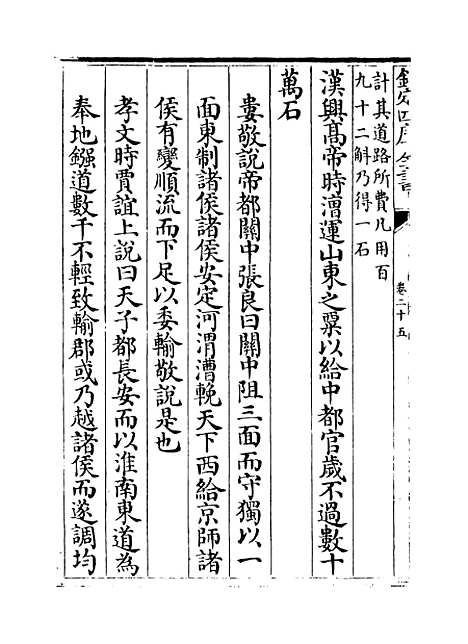 欽定四庫全書
卷二十五
計其道路所費凡用百
九十二斛乃得一石
漢興髙帝時漕運山東之粟以給中都官歲不過數十
萬石
婁敬説帝都關中張良曰關中阻三面而守獨以一
面東制諸侯諸侯安定河渭漕輓天下西給京師諸
侯有變順流而下足以委輸敬説是也
孝文時賈誼上説曰天子都長安而以淮南東道為
奉地鏹道數千不輕致輸郡或乃越諸侯而遂調均